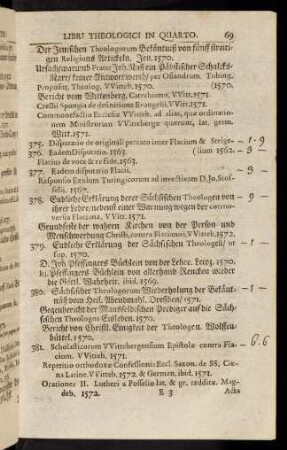 LIBRI THEOLOGICI IN QUARTO. 69
Der Jenischen Theologorum Bekäntnuß von fünff streiti-
gen Religions Artickeln. Jen. 1570.
Ursach/warumb Frater Joh. Naß ein Päbstischer Schalcks-
Narr/ keiner Antwort werth/ per Osiandrum. Tubing.
Proposit. Theolog. VVitteb. 1570. (1570.
Bericht vom Wittenberg. Catechismo, VVitt. 1571.
Crellii Spongia de definitione Evangelii, VVitt. 1571.
Commonefactio Ecclesiæ VVitteb. ad alias, quæ ordinatio-
nem Ministrorum VVitteberga querunt, lat. germ.
Witt. 1571.
375. Disputatio de originali peccato inter Flacium & Strige- - 1 - 9
376. Eadem Disputatio. 1563. (lium 1562. - 3 -
Flacius de voce & re fidei, 1563.
377. Eadem disputatio Flacii. - 3 -
Responsio Exulum Turingicorum ad invectivam D. Jo. Stos-
selii. 1567.
378. Endliche Erklärung derer Sächsischen Theologen von - 9 -
ihrer Lehre/ nebenst einer Warnung wegen der contro-
versia Flaciana, VVitt. 1571.
Grundfeste der wahren Kirchen von der Person und
Menschwerdung Christi, contra Flacianos, VVitteb. 1571.
379. Endliche Erklärung der Sächsischen Theologen/ ut - 1 -
sup. 1570.
D. Joh. Pfeffingers Büchlein von der Lehre. Leipz. 1570.
Ej. Pfeffingers Büchlein von allerhand Rencken wieder
die Göttl. Wahrheit. ibid. 1569.
380. Sächsischer Theologorum Wiederholung der Bekänt- - 1 -
nüß vom Heil. Abendmahl. Dresden/ 1571.
Gegenbericht der Mansfeldischen Prediger auf die Säch-
sischen Theologos Eisleben. 1570.
Bericht von Christl. Einigkeit der Theologen. Wolffen-
büttel. 1570.
381. Scholasticorum VVittebergensium Epistolæ contra Fla- - 6. 6
cium. VVitteb. 1571.
Repetitio orthodoxæ Confessionis Eccl. Saxon. de SS. Cœ-
na Latine. VVitteb. 1572. & German. ibid. 1571.
Orationes II. Lutheri a Posselio lat. & gr. redditæ. Mag-
deb. 1572. E 3 Acta